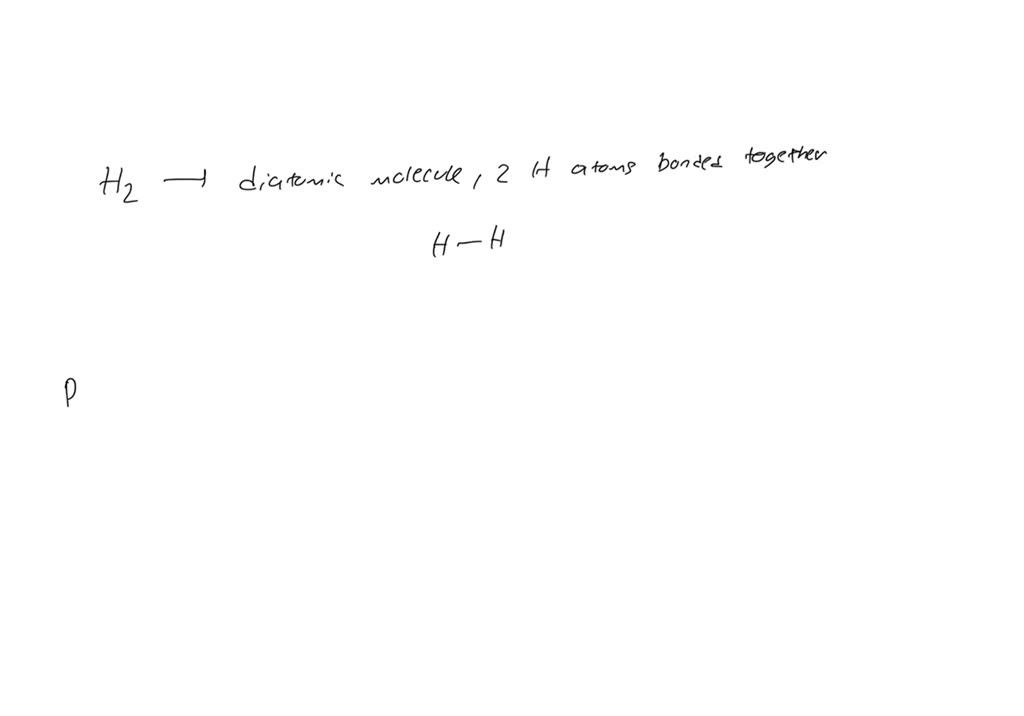 H₂ → diatomic molecule, 2 H atoms bonded together
H — H
P